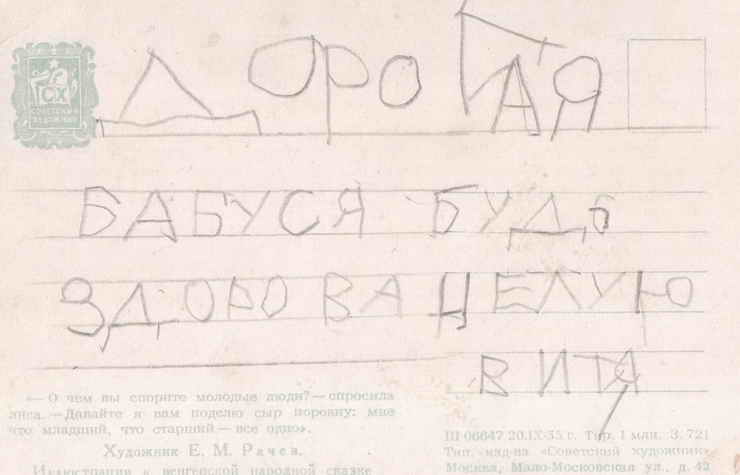 СХ
СОВЕТСКИЙ
ХУДОЖНИК
ДОРОГАЯ
БАБУСЯ БУДЬ
ЗДОРОВА ЦЕЛУЮ
ВИТЯ
«— О чем вы спорите молодые люди? — спросила
лиса. — Давайте я вам поделю сыр поровну: мне
что младший, что старший — все одно».
Художник Е. М. Рачев.
Иллюстрации к венгерской народной сказке
Ш 06647 20.IX-55 г. Тир. 1 млн. З. 721
Тип. изд-ва «Советский художник»
Москва, Мало-Московская ул., д. 42